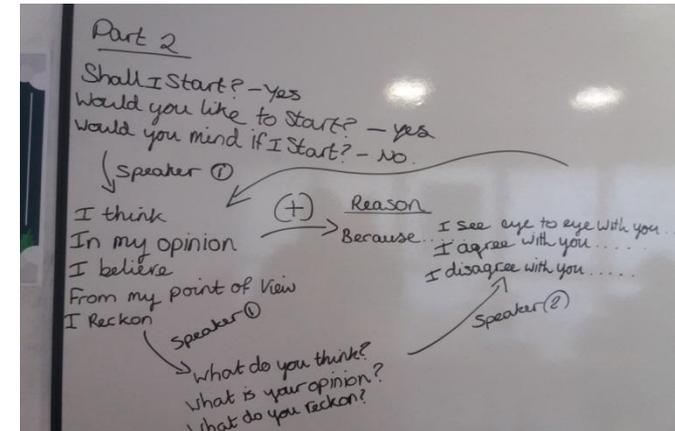 Part 2
Shall I Start? - Yes
Would you like to Start? - yes
Would you mind if I Start? - No.
Speaker ①
I think
In my opinion
I believe
From my point of View
I Reckon
(+)
Reason
Because...
I see eye to eye with you...
I agree with you.....
I disagree with you.....
Speaker ①
Speaker ②
What do you think?
What is your opinion?
What do you reckon?